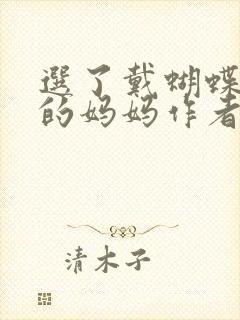 選了戴蝴蝶
的妈妈作者
清木子